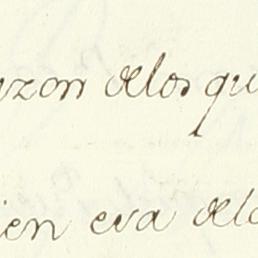 azon delos qu
ien era delo